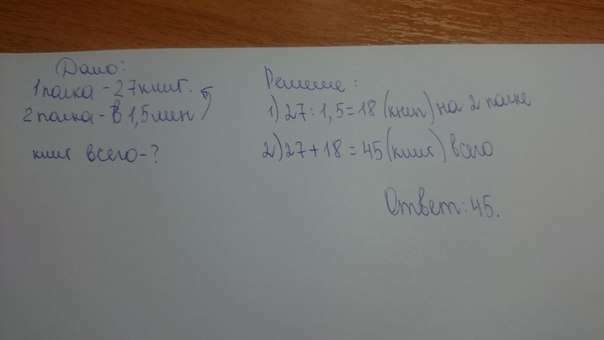 Дано:
1 полка - 27 книг.
2 полка - В 1,5 мен
книг всего - ?
Решение:
1) 27 : 1,5 = 18 (книг) на 2 полке
2) 27 + 18 = 45 (книг) всего
Ответ: 45.